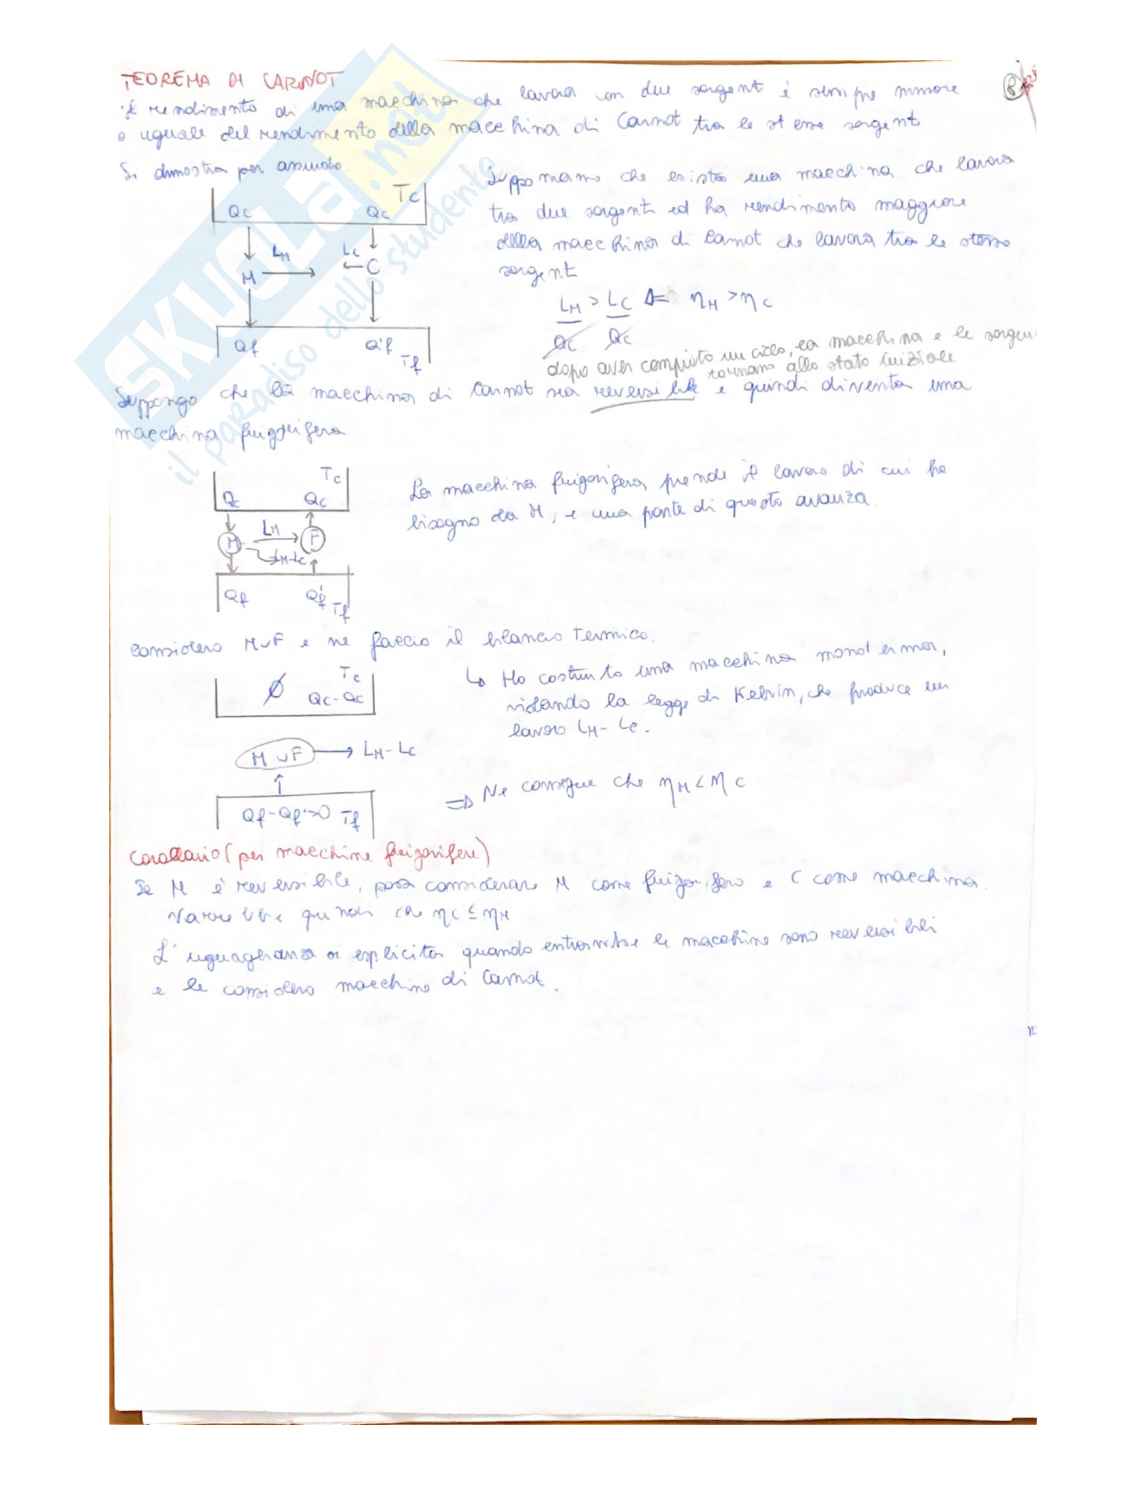 TEOREMA DI CARNOT
Il rendimento di una macchina che lavora con due sorgenti è sempre minore
o uguale del rendimento della macchina di Carnot tra le stesse sorgenti
Si dimostra per assurdo
Supponiamo che esista una macchina che lavora
tra due sorgenti ed ha rendimento maggiore
della macchina di Carnot che lavora tra le stesse
sorgenti
Qc Qc Tc
LM Lc
M C
Qf Q'f Tf
LM/Qc > LC/Qc ⇐ ηM > ηC
dopo aver compiuto un ciclo, la macchina e le sorgen
tornano allo stato iniziale
Suppongo che la macchina di Carnot sia reversibile e quindi diventa una
macchina frigorifera
Tc
Qc Qc
M LM F
LM-Lc
Qf Q'f Tf
La macchina frigorifera prende il lavoro di cui ha
bisogno da M, e una parte di questo avanza.
Considero M∪F e ne faccio il bilancio termico.
Tc
Ø Qc-Qc
M∪F → LM-LC
Qf-Qf'>0 Tf
↳ Ho costruito una macchina monotermica,
violando la legge di Kelvin, che produce un
lavoro LM-LC.
⇒ Ne consegue che ηM<ηC
Corollario (per macchine frigorifere)
Se M è reversibile, posso considerare M come frigorifero e C come macchina.
Varrebbe quindi che ηC ≤ ηM
L'uguaglianza si esplicita quando entrambe le macchine sono reversibili
e le considero macchine di Carnot.
SKUOLA.net
il paradiso dello studente